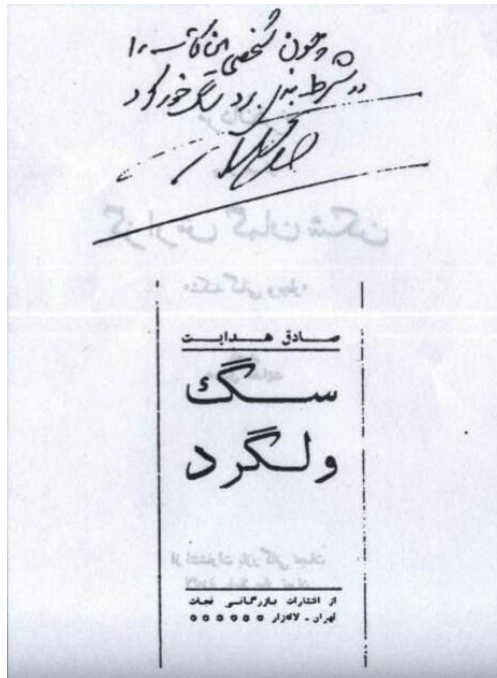 چون شخصی این کتاب را
در شرط بندی برد سگ خور کرد
گزارش گمان شکن
صادق هدایت
سگ
ولگرد
از انتشارات بازرگانی نجات
تهران - لاله‌زار